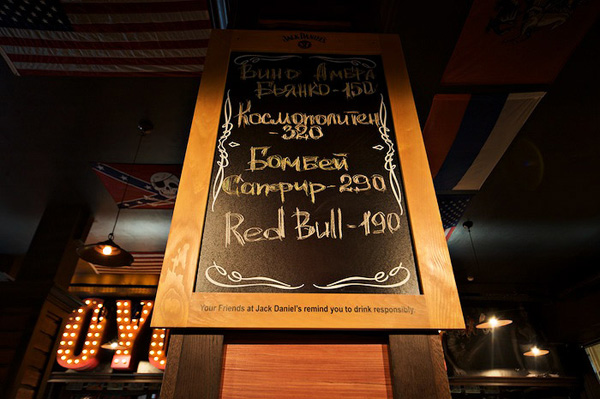 JACK DANIEL'S
Вино Амера
Бьянко-150
Космополитен
-320
Бомбей
Сапфир-290
Red Bull-190
Your Friends at Jack Daniel's remind you to drink responsibly.
OY